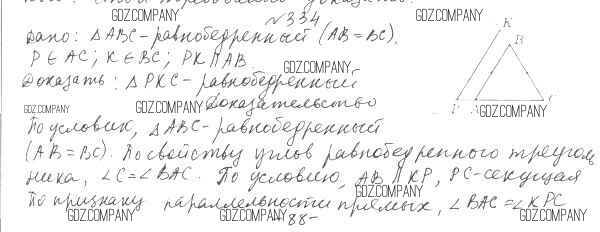 GDZ.COMPANY GDZ.COMPANY
№334
Дано: ΔABC-равнобедренный (AB=BC).
P∈AC; K∈BC; PK∥AB
GDZ.COMPANY
Доказать: ΔPKC-равнобедренный
GDZ.COMPANY GDZ.COMPANY
Доказательство
K
B
P A GDZ.COMPANY C
По условию, ΔABC-равнобедренный
(AB=BC). По свойству углов равнобедренного треуголь
ника, ∠C=∠BAC. По условию, AB∥KP, PC-секущая
GDZ.COMPANY
По признаку параллельности прямых, ∠BAC=∠KPC
GDZ.COMPANY GDZ.COMPANY GDZ.COMPANY
-88-